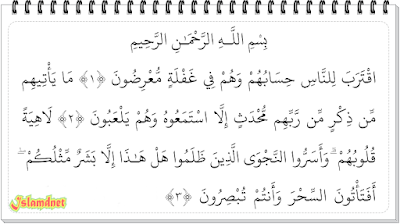 بِسْمِ اللَّـهِ الرَّحْمَـٰنِ الرَّحِيمِ
اقْتَرَبَ لِلنَّاسِ حِسَابُهُمْ وَهُمْ فِي غَفْلَةٍ مُّعْرِضُونَ ﴿١﴾ مَا يَأْتِيهِم
مِّن ذِكْرٍ مِّن رَّبِّهِم مُّحْدَثٍ إِلَّا اسْتَمَعُوهُ وَهُمْ يَلْعَبُونَ ﴿٢﴾ لَاهِيَةً
قُلُوبُهُمْ ۗ وَأَسَرُّوا النَّجْوَى الَّذِينَ ظَلَمُوا هَلْ هَـٰذَا إِلَّا بَشَرٌ مِّثْلُكُمْ ۖ
أَفَتَأْتُونَ السِّحْرَ وَأَنتُمْ تُبْصِرُونَ ﴿٣﴾
Islamdnet